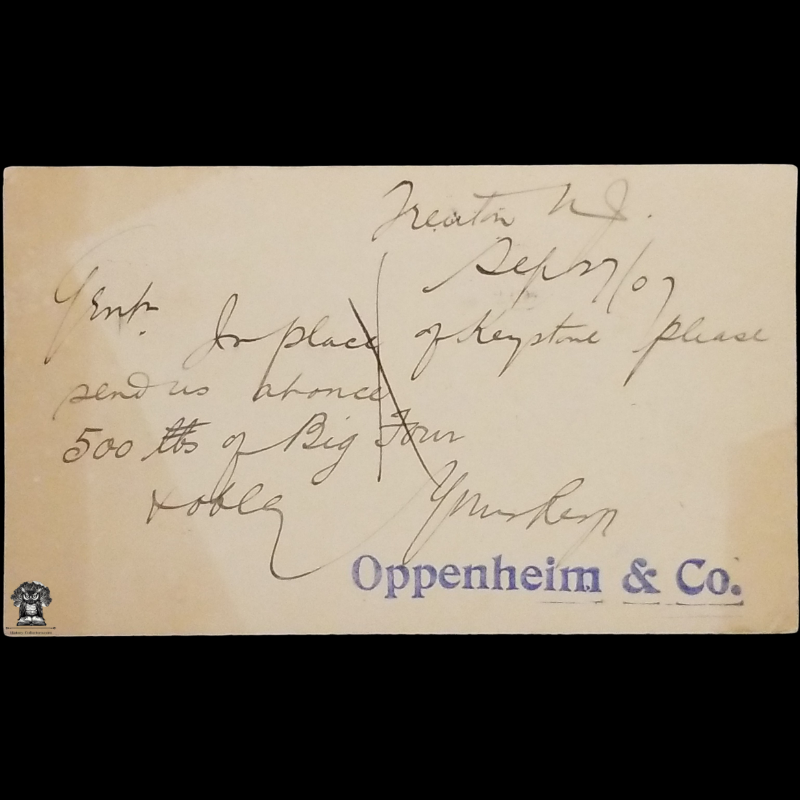 Trenton NJ.
Sep 27/07
Gent. In place of Keystone please
send us at once
500 lbs of Big Four
& oblg
Yours Resp
Oppenheim & Co.